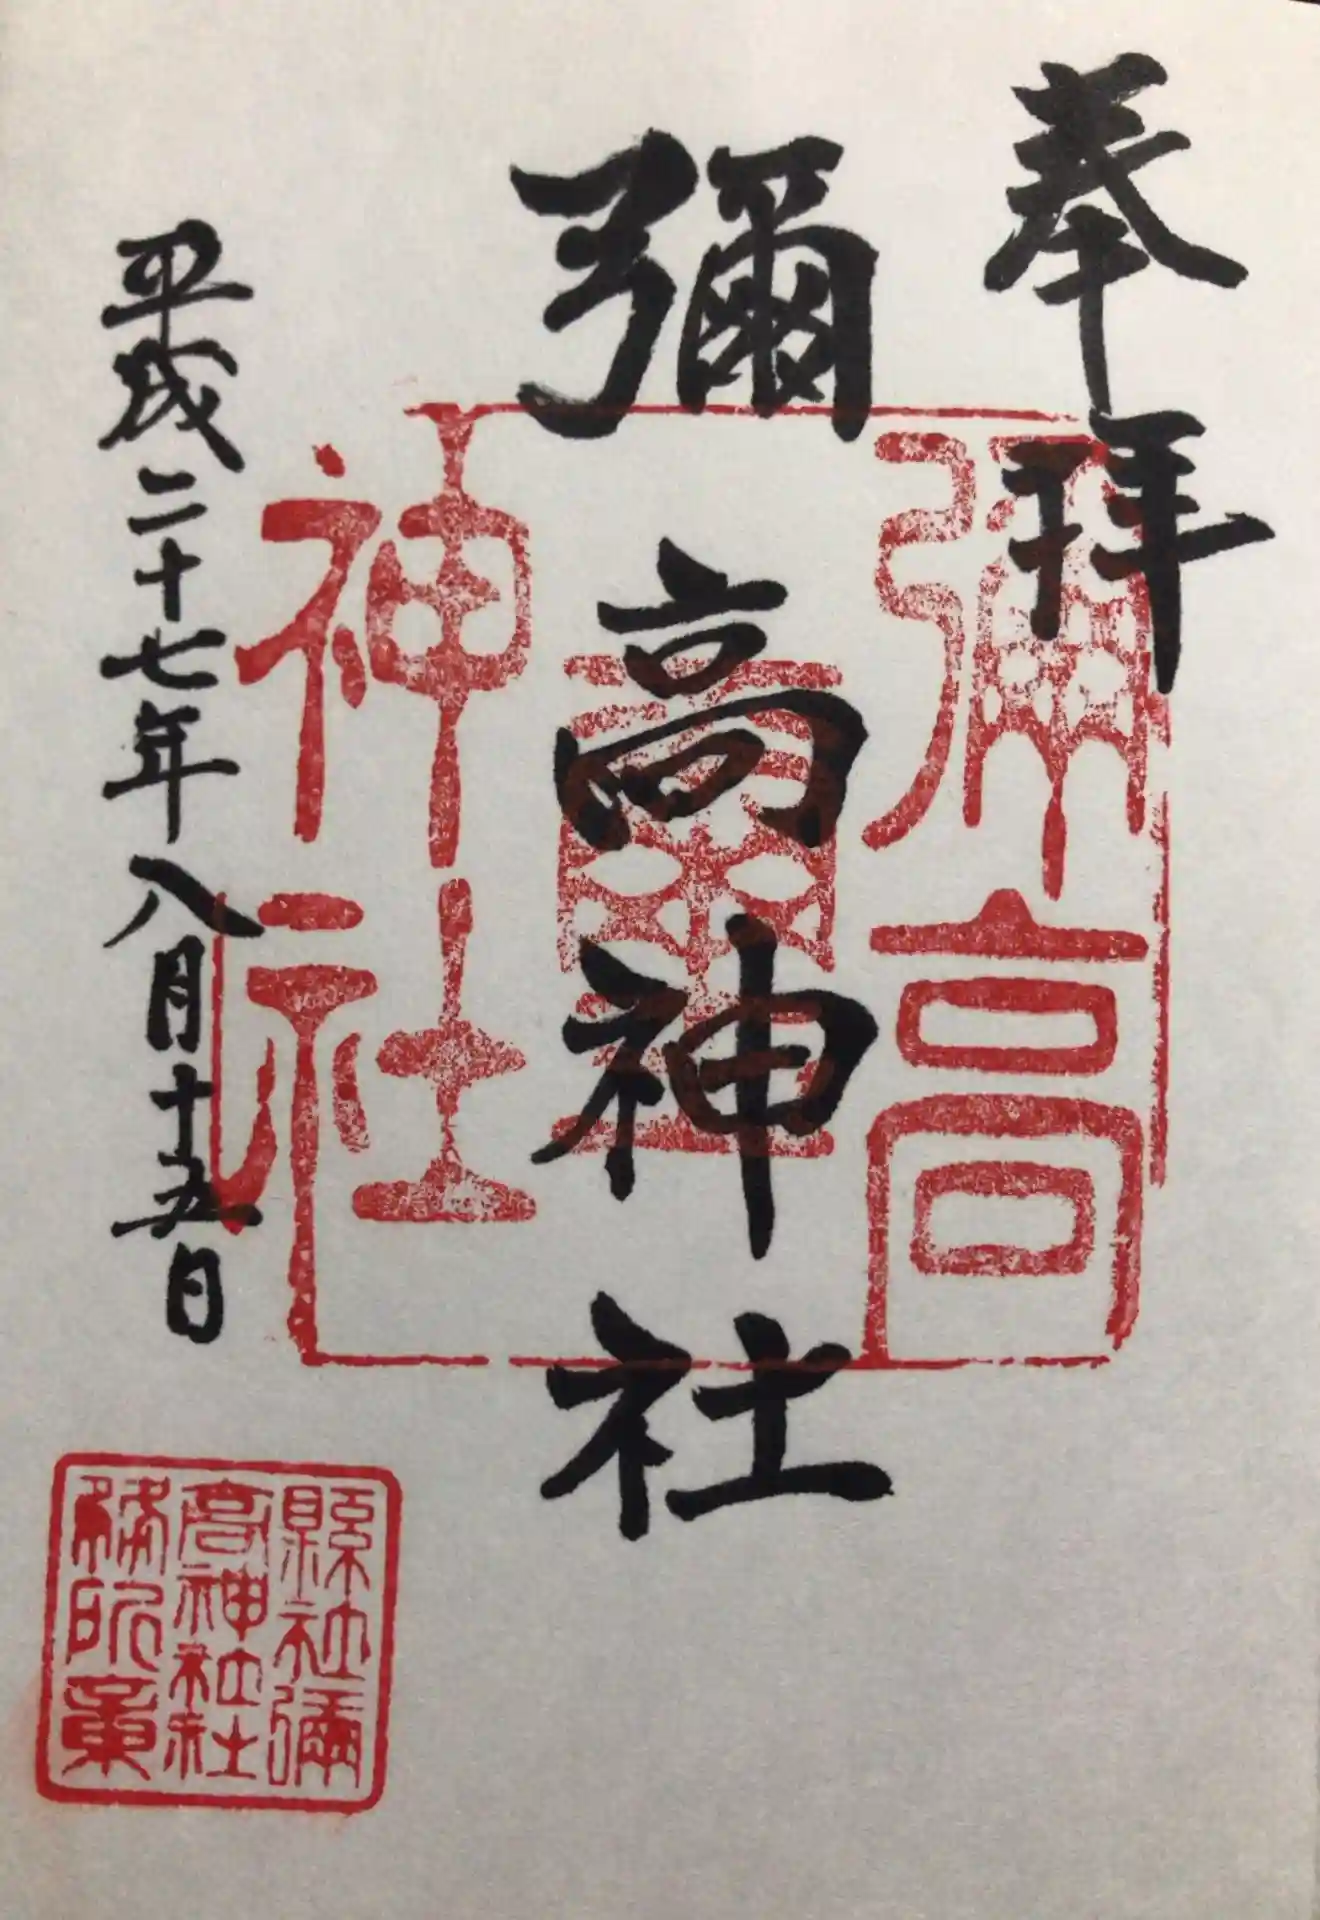 奉拜
彌高神社
平成二十七年八月十五日
彌高
神社
縣社彌
高神社社
務所章